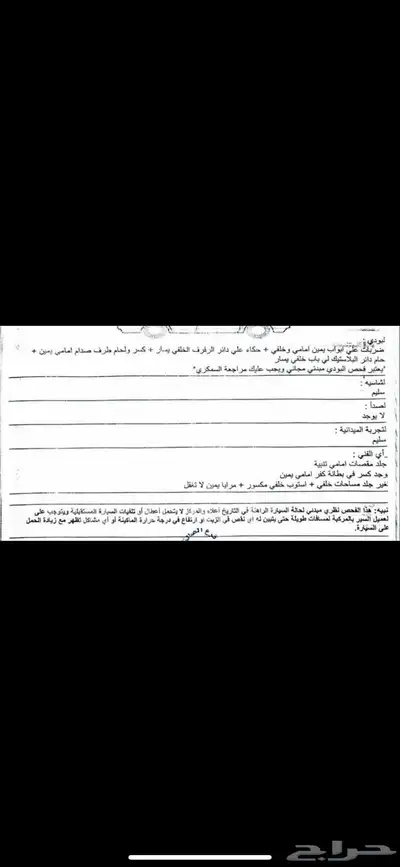 لبودي :
ضربات علي ابواب يمين امامي وخلفي + حكاء علي دائر الرفرف الخلفي يسار + كسر ولحام طرف صدام امامي يمين +
حام دائر البلاستيك لي باب خلفي يسار
"يعتبر فحص البودي مبدئي مجاني ويجب عليك مراجعة السمكري"
لشاسيه :
سليم
لصدأ :
لا يوجد
لتجربة الميدانية :
سليم
رأي الفني :
جلد مقصات امامي تندية
وجد كسر في بطانة كفر امامي يمين
غير جلد مساحات خلفي + استوب خلفي مكسور + مرايا يمين لا تغفل
تنبيه: هذا الفحص نظري مبدئي لحالة السيارة الراهنة في التاريخ أعلاه والمركز لا يتحمل أعطال أو تلفيات السيارة المستقبلية ويتوجب على
لعميل السير بالمركبة لمسافات طويلة حتى يتبين له اي نقص في الزيت او ارتفاع في درجة حرارة الماكينة أو أي مشاكل تظهر مع زيادة الحمل
على السيارة.
حراج